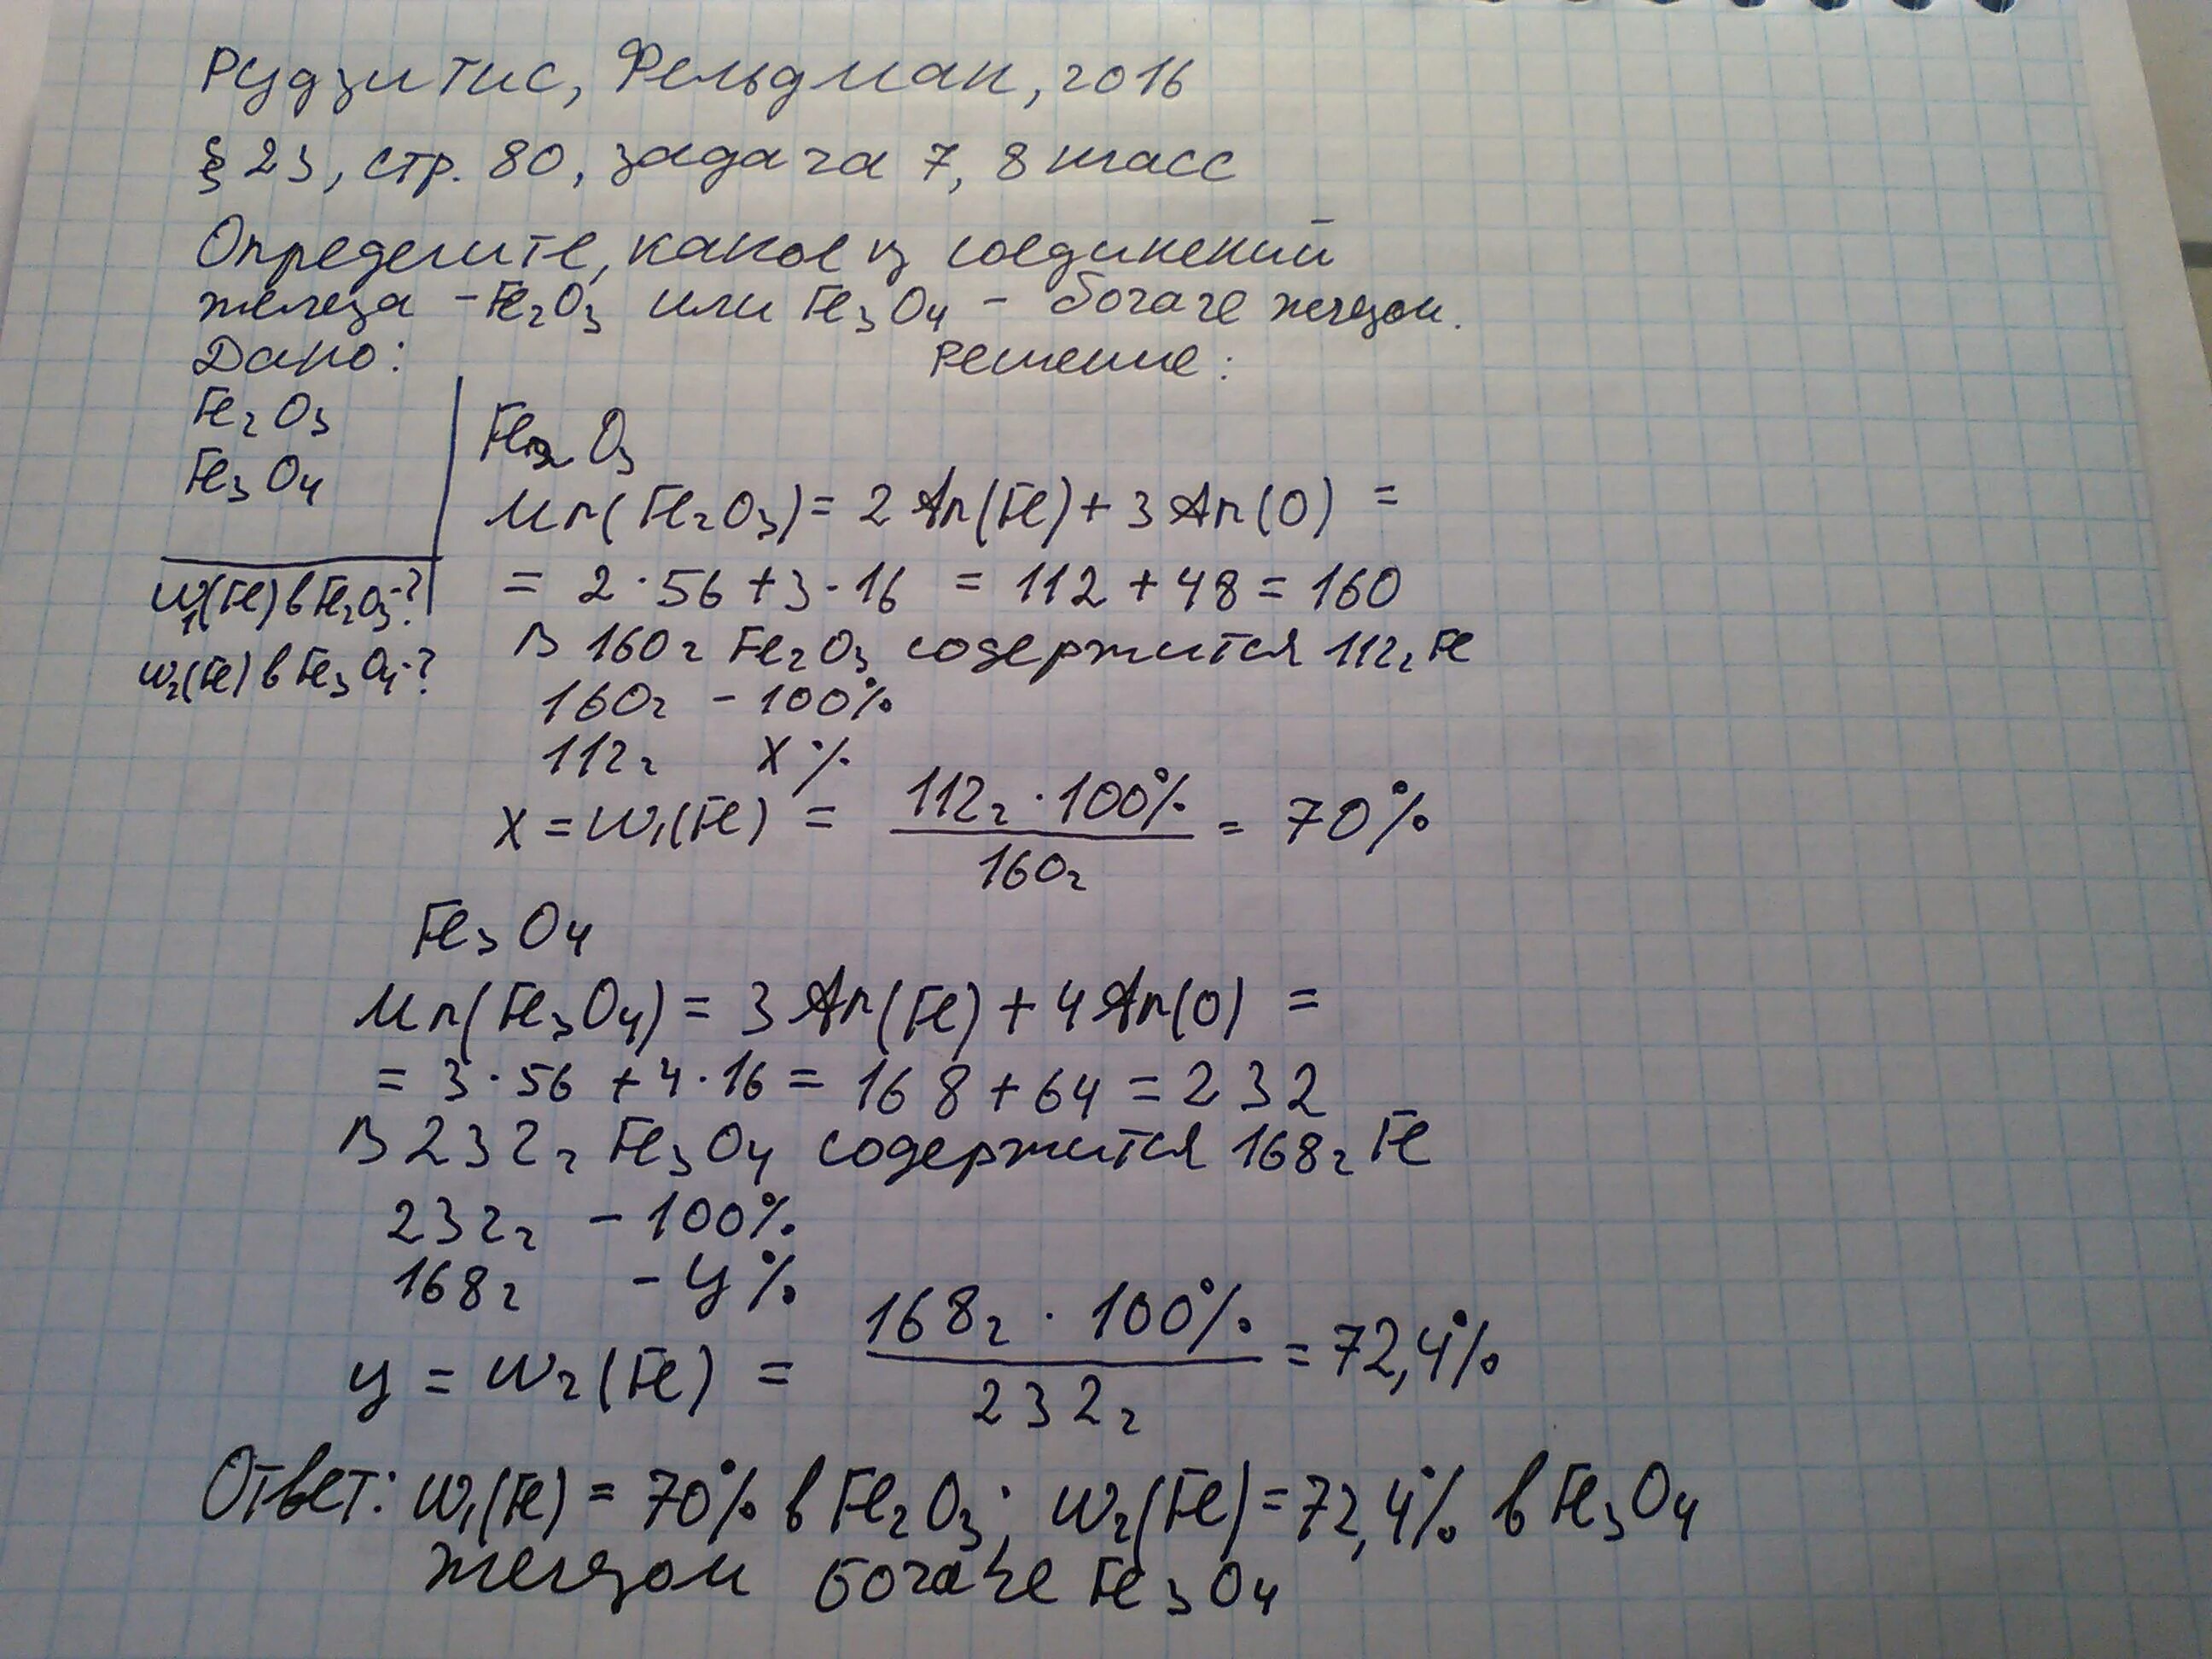 Рудзитис, Фельдман, 2016
§ 23, стр. 80, задача 7, 8 класс
Определите, какое из соединений
железа - Fe₂O₃ или Fe₃O₄ - богаче железом.
Дано:
Решение:
Fe₂O₃
Fe₃O₄
w₁(Fe) в Fe₂O₃-?
w₂(Fe) в Fe₃O₄-?
Fe₂O₃
Mr(Fe₂O₃) = 2 Ar(Fe) + 3 Ar(O) =
= 2·56 + 3·16 = 112 + 48 = 160
В 160г Fe₂O₃ содержится 112г Fe
160г - 100%
112г х %
х = w₁(Fe) = 112г · 100% / 160г = 70%
Fe₃O₄
Mr(Fe₃O₄) = 3 Ar(Fe) + 4 Ar(O) =
= 3·56 + 4·16 = 168 + 64 = 232
В 232г Fe₃O₄ содержится 168г Fe
232г - 100%
168г - у %
у = w₂(Fe) = 168г · 100% / 232г = 72,4%
Ответ: w₁(Fe) = 70% в Fe₂O₃; w₂(Fe) = 72,4% в Fe₃O₄
железом богаче Fe₃O₄